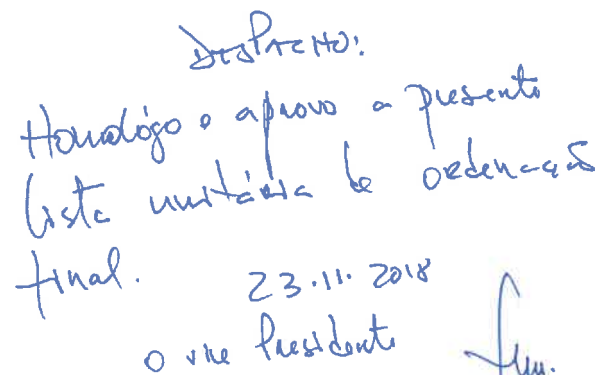 DESPACHO:
Homológo e aprovo a presente
lista unitária de ordenação
final.
23.11.2018
O vice Presidente